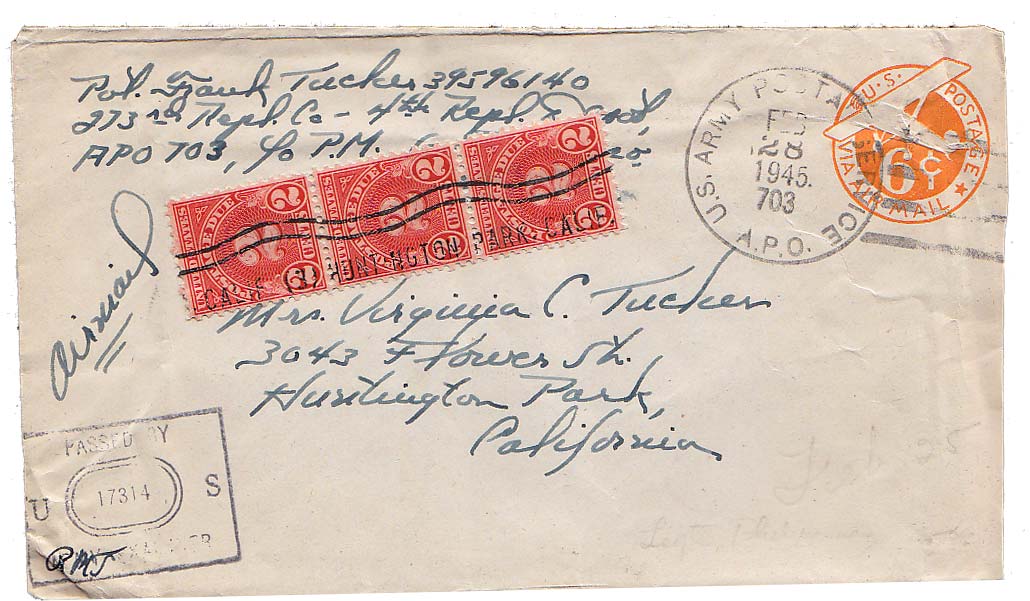 Pvt. Frank Tucker 39596140
273rd Repl. Co - 4th Repl. Depot
APO 703, c/o P.M.
U.S. ARMY POSTAL SERVICE
A.P.O.
FEB
28
1945
703
U.S. POSTAGE
VIA AIR MAIL
6¢
POSTAGE DUE
2
2
2
HUNTINGTON PARK, CALIF.
Airmail
Mrs. Virginia C. Tucker
3043 Flower St.
Huntington Park,
California
PASSED BY
U 17314 S
ARMY EXAMINER
RMJ